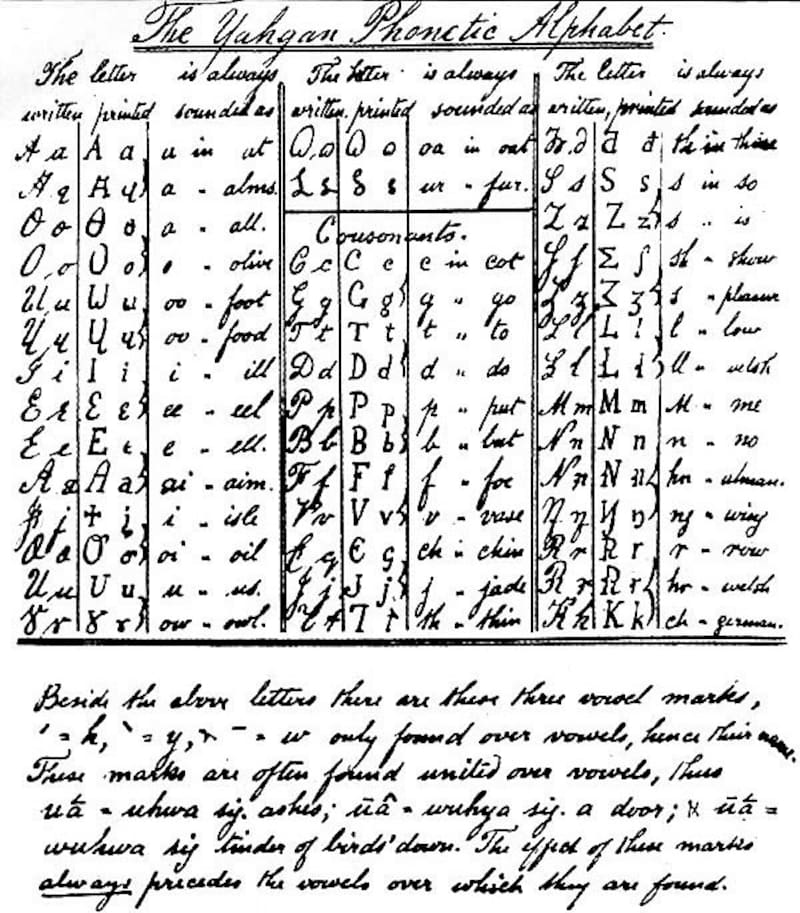 The Yahgan Phonetic Alphabet.
The letter is always
written printed sounded as
A a A a u in at
a " alms.
a " all.
O o O o o " olive
U u oo " foot
oo " food
I i I i i " ill
ee " eel
E e " ell.
A a ai " aim.
i " isle
oi " oil
U u U u u " us.
Ɣ ɤ Ɣ ɤ ow " owl.
The letter is always
written, printed sounded as
oa in oat
ur " fur.
Consonants.
C c C c c in cot
G g G g g " go
T t T t t " to
D d D d d " do
P p P p p " put
B b B b b " but
F f F f f " foe
V v V v v " vase
ch in chin
J j J j j " jade
th " thin
The letter is always
written, printed sounded as
th in thine
S s S s s in so
Z z Z z s " is
Σ ʃ sh " show
s " pleasur
L l L l l " low
ll " welsh
M m M m M " me
N n N n n " no
hn "
ng " wing
R r R r r " row
hr " welsh
K k K k ch " german.
Beside the above letters there are these three vowel marks,
ˊ = h, ˋ = y, ˉ = w only found over vowels, hence their name.
These marks are often found united over vowels, thus
= uhwa sig. ashes; ūâ = wuhya sig. a door;
wuhwa sig tinder of birds' down. The effect of these marks
always precedes the vowels over which they are found.